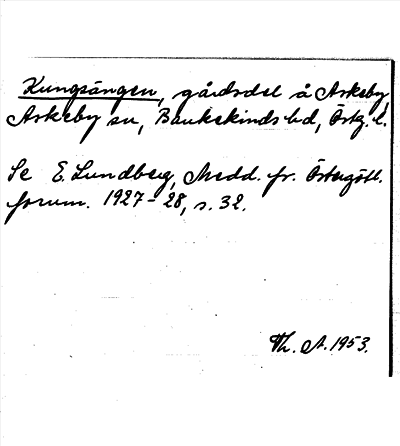 Kungsängen, gårdsdel å Askeby,
Askeby sn, Bankekinds hd, Östg. l.
Se E. Lundberg, Medd. fr. Östergötl.
fornm. 1927-28, s. 32.
Th. A. 1953.